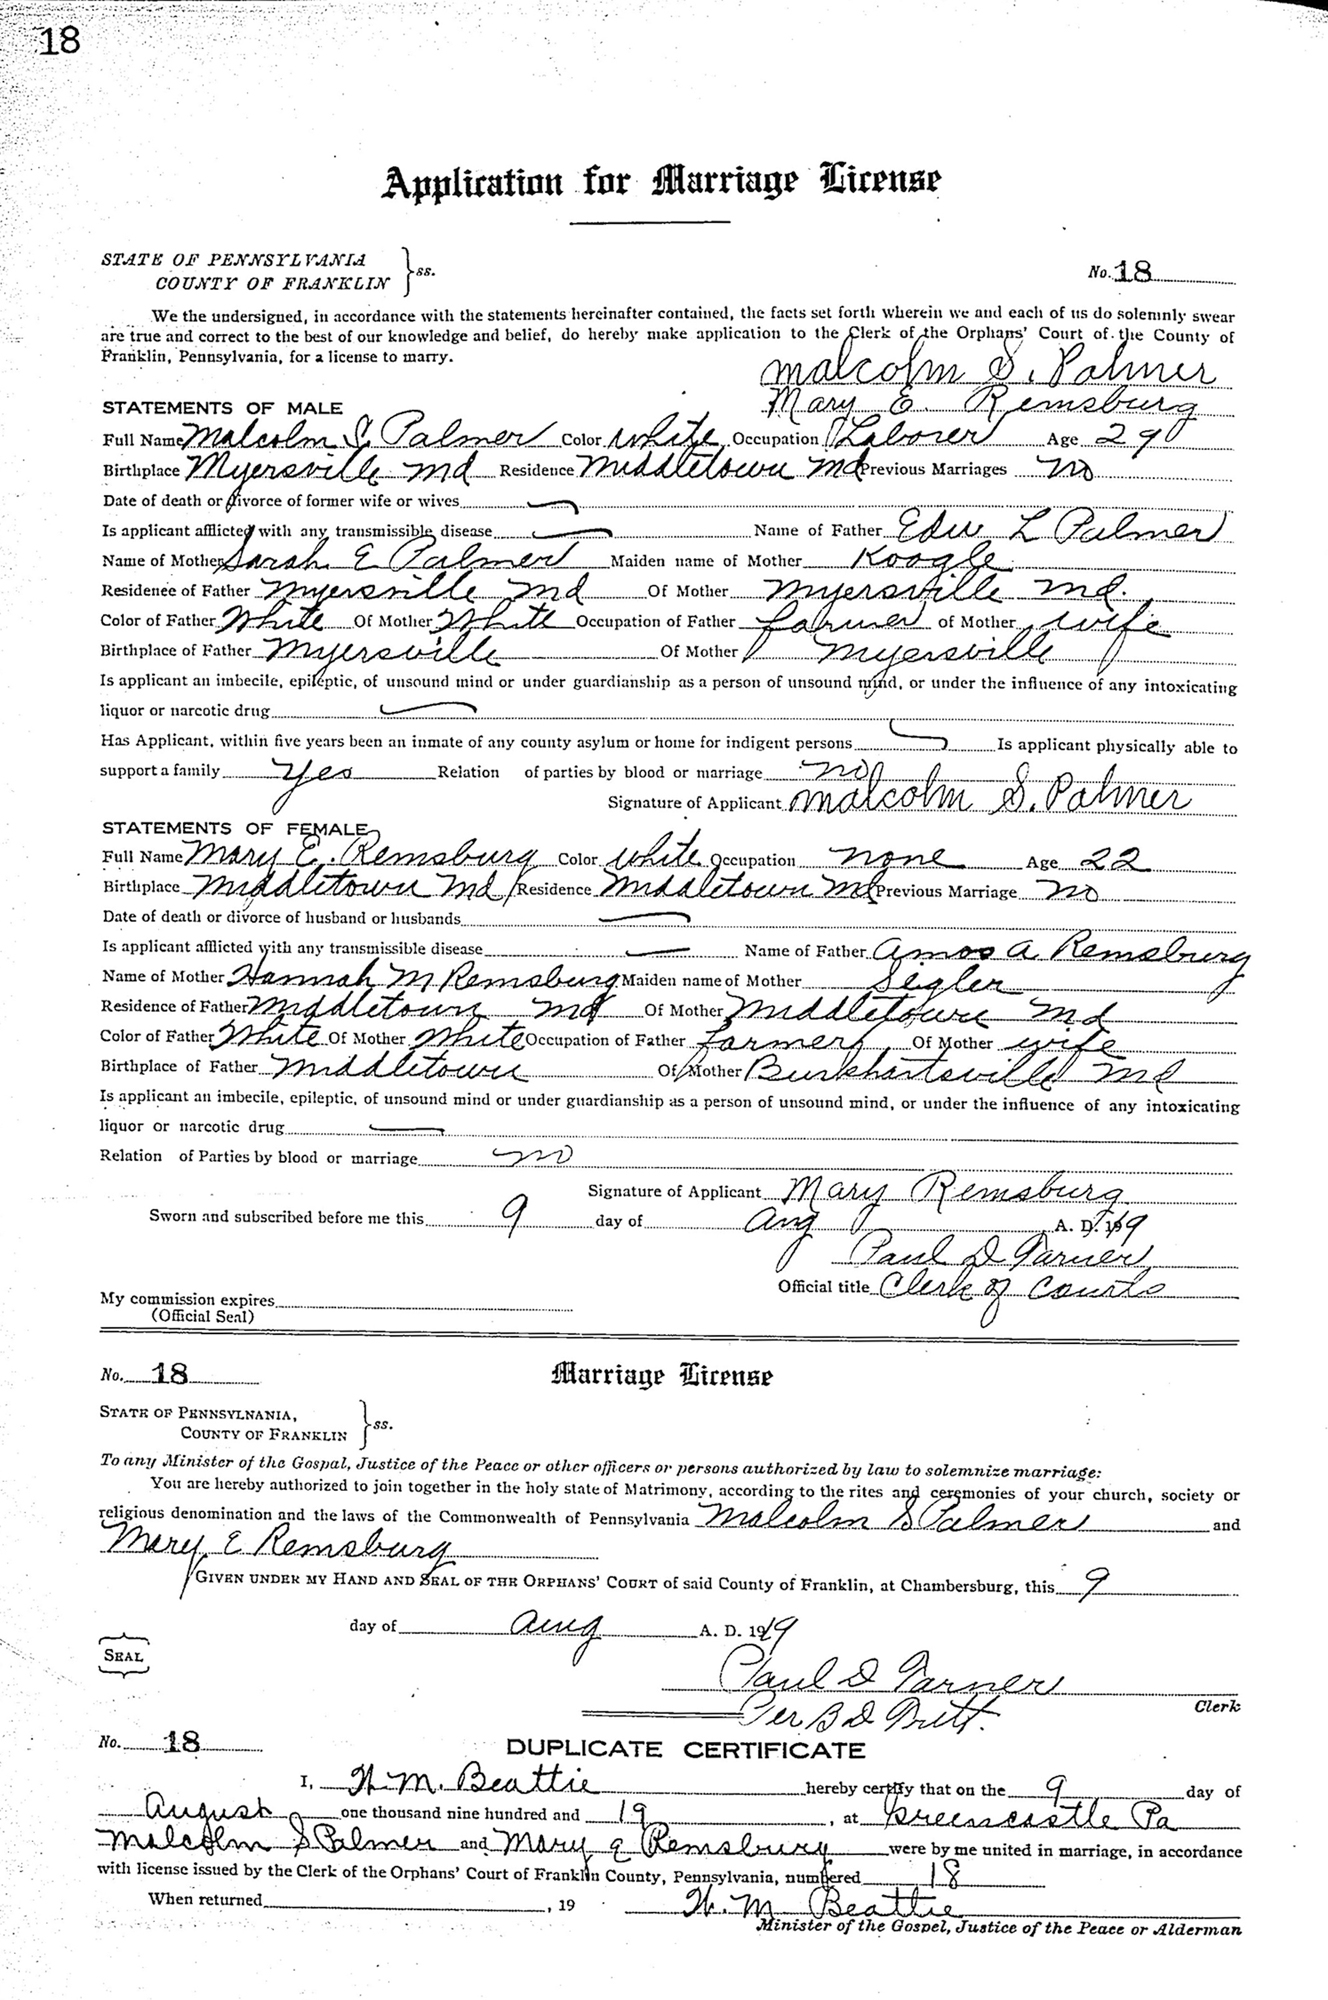 18
Application for Marriage License
STATE OF PENNSYLVANIA
COUNTY OF FRANKLIN } ss.
No. 18
We the undersigned, in accordance with the statements hereinafter contained, the facts set forth wherein we and each of us do solemnly swear
are true and correct to the best of our knowledge and belief, do hereby make application to the Clerk of the Orphans' Court of the County of
Franklin, Pennsylvania, for a license to marry.
Malcolm S. Palmer
Mary E. Remsburg
STATEMENTS OF MALE
Full Name Malcolm S Palmer Color white Occupation Laborer Age 29
Birthplace Myersville Md Residence Middletown Md Previous Marriages no
Date of death or divorce of former wife or wives
Is applicant afflicted with any transmissible disease Name of Father Edw L Palmer
Name of Mother Sarah E Palmer Maiden name of Mother Koogle
Residence of Father Myersville Md Of Mother Myersville Md.
Color of Father White Of Mother White Occupation of Father farmer of Mother wife
Birthplace of Father Myersville Of Mother Myersville
Is applicant an imbecile, epileptic, of unsound mind or under guardianship as a person of unsound mind, or under the influence of any intoxicating
liquor or narcotic drug
Has Applicant, within five years been an inmate of any county asylum or home for indigent persons Is applicant physically able to
support a family Yes Relation of parties by blood or marriage no
Signature of Applicant Malcolm S. Palmer
STATEMENTS OF FEMALE
Full Name Mary E. Remsburg Color white Occupation none Age 22
Birthplace Middletown Md Residence Middletown Md Previous Marriage no
Date of death or divorce of husband or husbands
Is applicant afflicted with any transmissible disease Name of Father Amos A Remsburg
Name of Mother Hannah M Remsburg Maiden name of Mother Sigler
Residence of Father Middletown Md Of Mother Middletown Md
Color of Father White Of Mother White Occupation of Father farmer Of Mother wife
Birthplace of Father Middletown Of Mother Burkhartsville Md
Is applicant an imbecile, epileptic, of unsound mind or under guardianship as a person of unsound mind, or under the influence of any intoxicating
liquor or narcotic drug
Relation of Parties by blood or marriage no
Signature of Applicant Mary Remsburg
Sworn and subscribed before me this 9 day of Aug A. D. 1919
Paul D Tarner
Official title Clerk of Courts
My commission expires
(Official Seal)
No. 18
Marriage License
STATE OF PENNSYLNANIA,
COUNTY OF FRANKLIN } ss.
To any Minister of the Gospal, Justice of the Peace or other officers or persons authorized by law to solemnize marriage:
You are hereby authorized to join together in the holy state of Matrimony, according to the rites and ceremonies of your church, society or
religious denomination and the laws of the Commonwealth of Pennsylvania Malcolm S Palmer and
Mary E Remsburg
GIVEN UNDER MY HAND AND SEAL OF THE ORPHANS' COURT of said County of Franklin, at Chambersburg, this 9
day of Aug A. D. 1919
SEAL
Paul D Tarner
Clerk
Per B D
No. 18
DUPLICATE CERTIFICATE
I, W. M. Beattie hereby certify that on the 9 day of
August one thousand nine hundred and 19, at Greencastle Pa
Malcolm S Palmer and Mary E Remsburg were by me united in marriage, in accordance
with license issued by the Clerk of the Orphans' Court of Franklin County, Pennsylvania, numbered 18
When returned , 19
W. M. Beattie
Minister of the Gospel, Justice of the Peace or Alderman